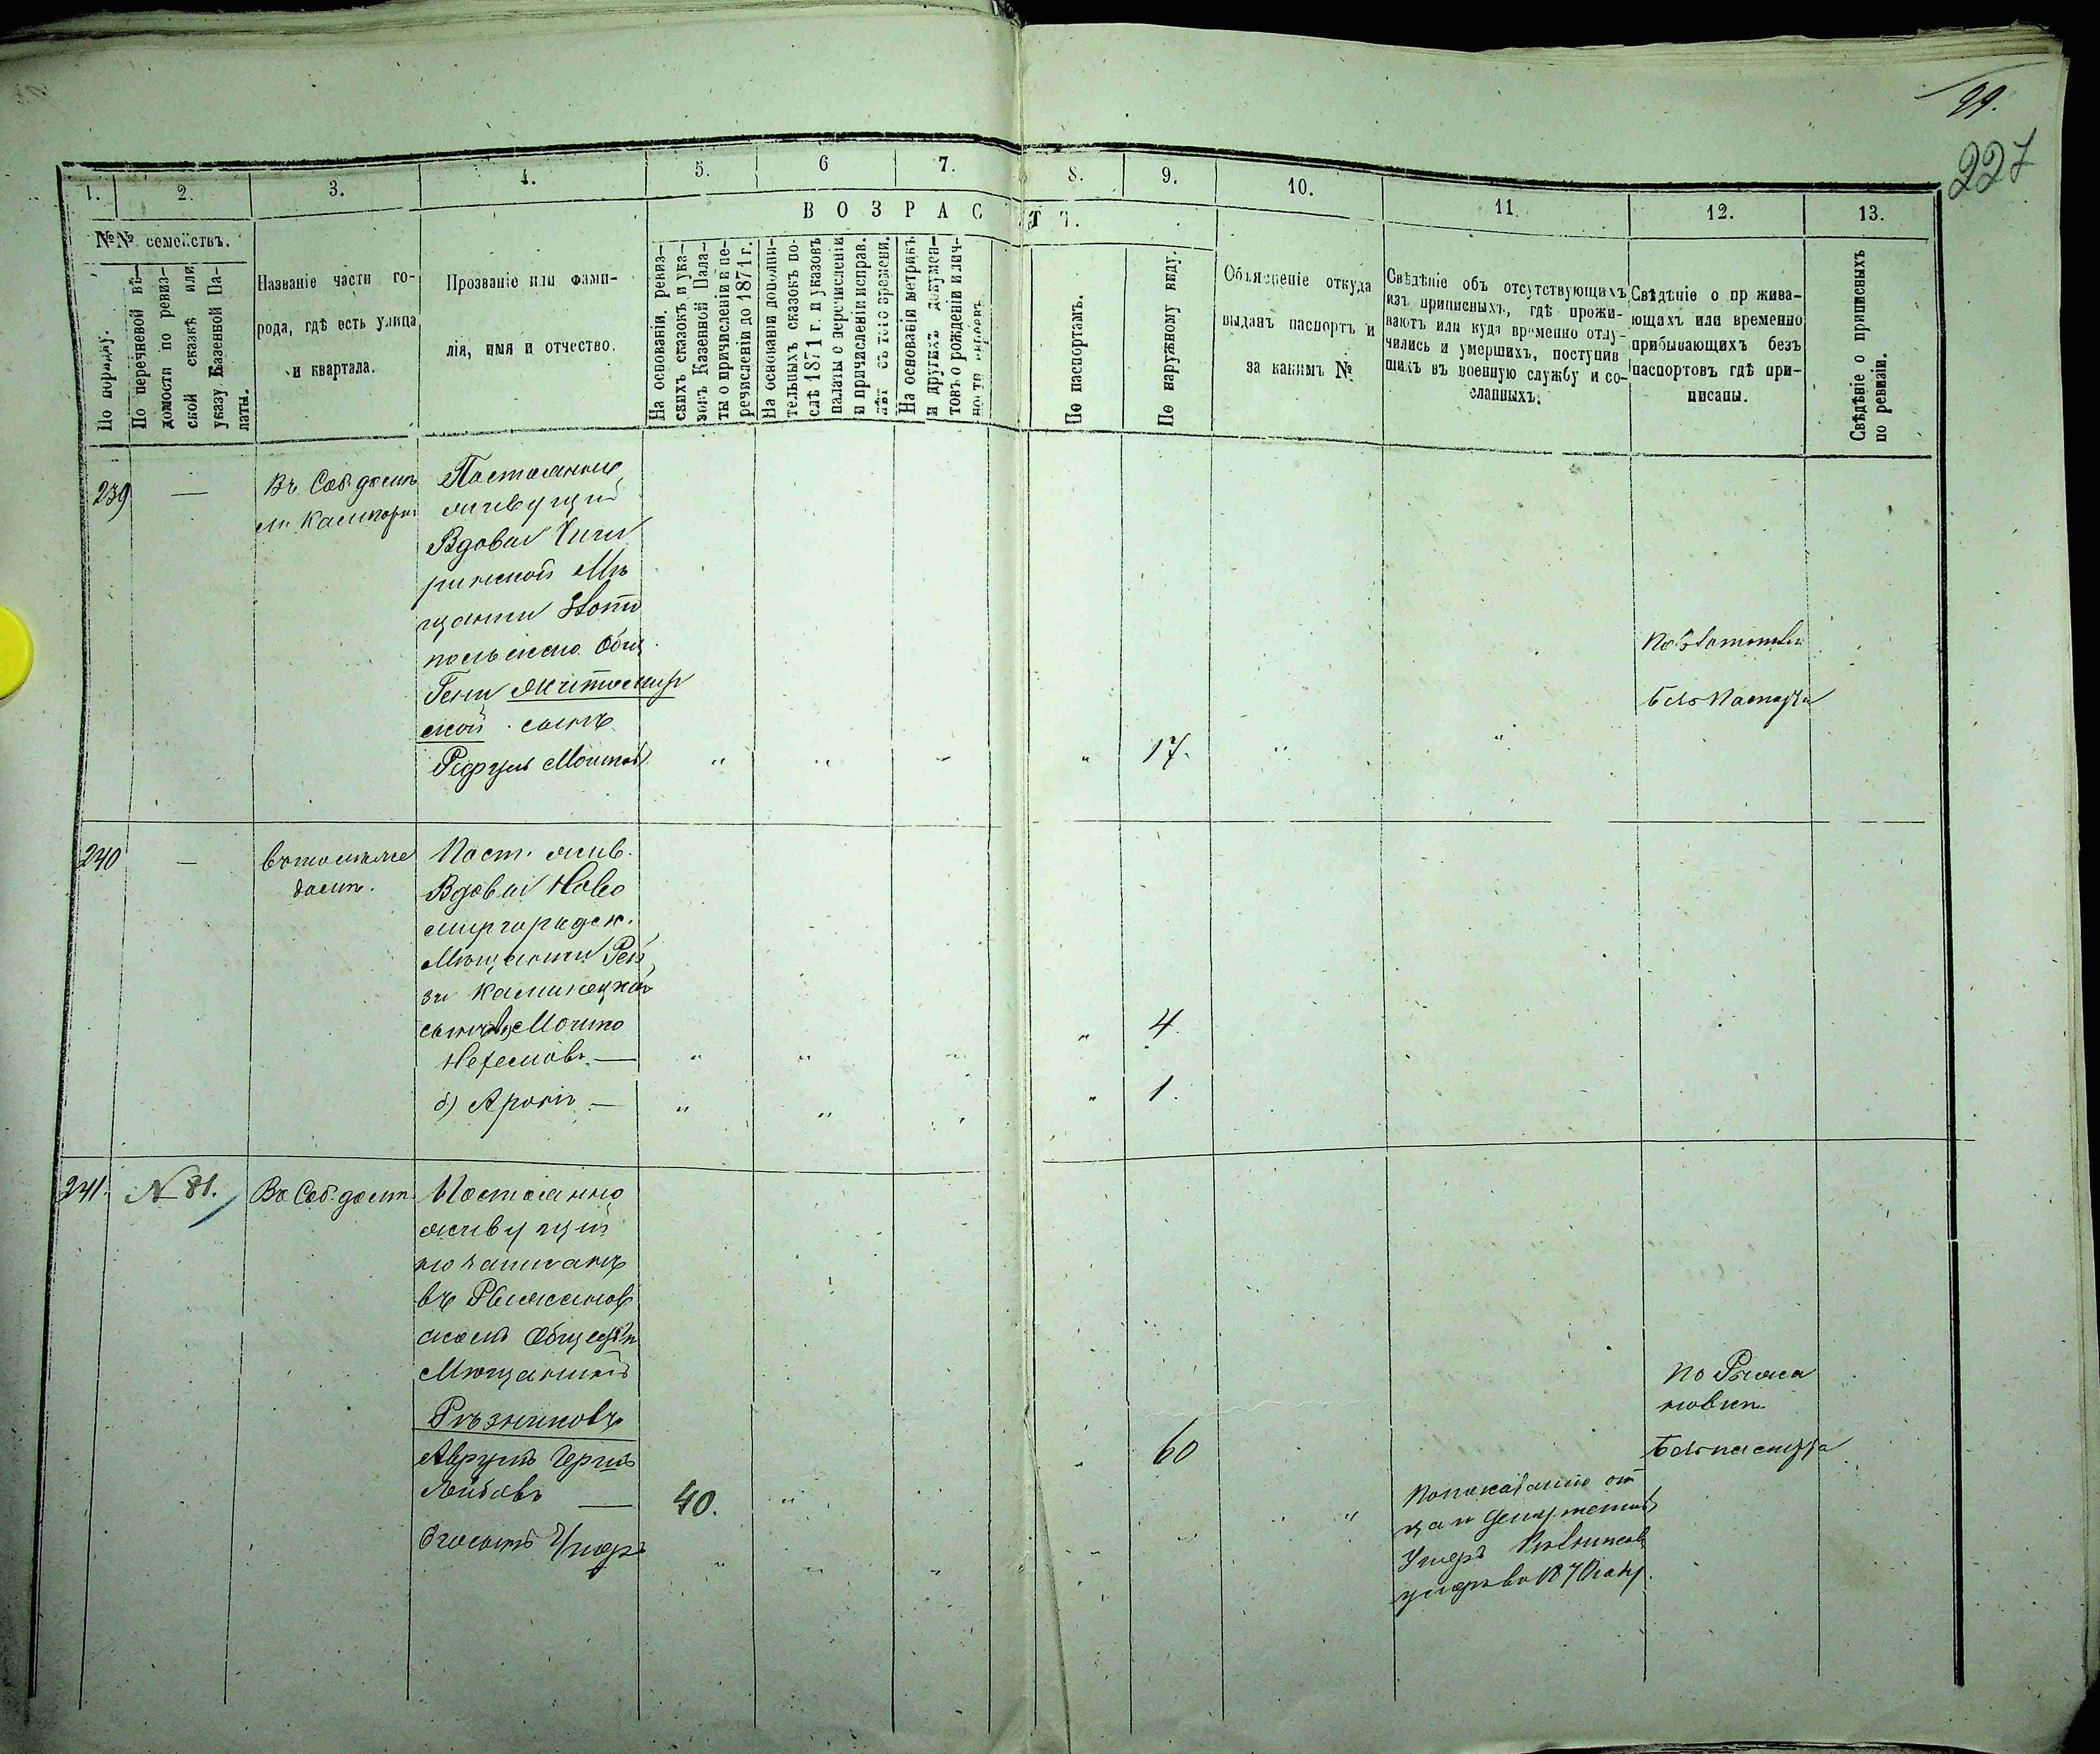 99.
227
1.
2.
3.
4.
5.
6
7.
8.
9.
10.
11
12.
13.
В О З Р А С Т Ъ.
№№ семействъ.
По порядку.
По перечневой вѣ-
домости по ревиз-
ской сказкѣ или
указу Казенной Па-
латы.
Названіе части го-
рода, гдѣ есть улица
и квартала.
Прозваніе или фами-
лія, имя и отчество.
На основаніи ревиз-
скихъ сказокъ и ука-
зовъ Казенной Пала-
ты о причисленіи и пе-
речисленіи до 1871 г.
На основаніи дополни-
тельныхъ сказокъ по-
слѣ 1871 г. и указовъ
палаты о перечисленіи
и причисленіи исправ.
лѣт съ того времени.
На основаніи метрикъ
и другихъ докумен-
товъ о рожденіи и лич-
ности евреевъ.
По паспортамъ.
По наружному виду.
Объясненіе откуда
выданъ паспортъ и
за какимъ №
Свѣдѣніе объ отсутствующихъ
изъ приписныхъ, гдѣ прожи-
ваютъ или куда временно отлу-
чились и умершихъ, поступив
шихъ въ военную службу и со-
сланныхъ.
Свѣдѣніе о прожива-
ющихъ или временно
прибывающихъ безъ
паспортовъ гдѣ при-
писаны.
Свѣдѣніе о приписныхъ
по ревизіи.
239 —
Въ Соб. домѣ
Постоянно
живущій
Вдовы Чиги
ринской Мѣ
щанки Злато
польскаго Общ.
Гени Житомир
ской сынъ
Мошковъ " " " " 17. " "
Безъ Паспорта
240 — въ томъ же
домѣ.
Пост. жив.
Вдовы Ново
миргородск.
Мѣщанки Рей
зи Каминецкой
сыновья Мошко
Нехемовъ — " " " " 4.
б) Аронъ — " " " " 1.
241. № 81. Въ Соб. домѣ
Постоянно
живущій
но записанъ
въ Рыжанов
скомъ Обществѣ
Мѣщанинъ
Рѣзниковъ
Аврумъ Герш
Лейбовъ — 40. " " " 60 " "
Егосынъ Умеръ " " " "
По показанію от
ца и депутатовъ
По Рыжа
новкѣ
Безъ паспорта